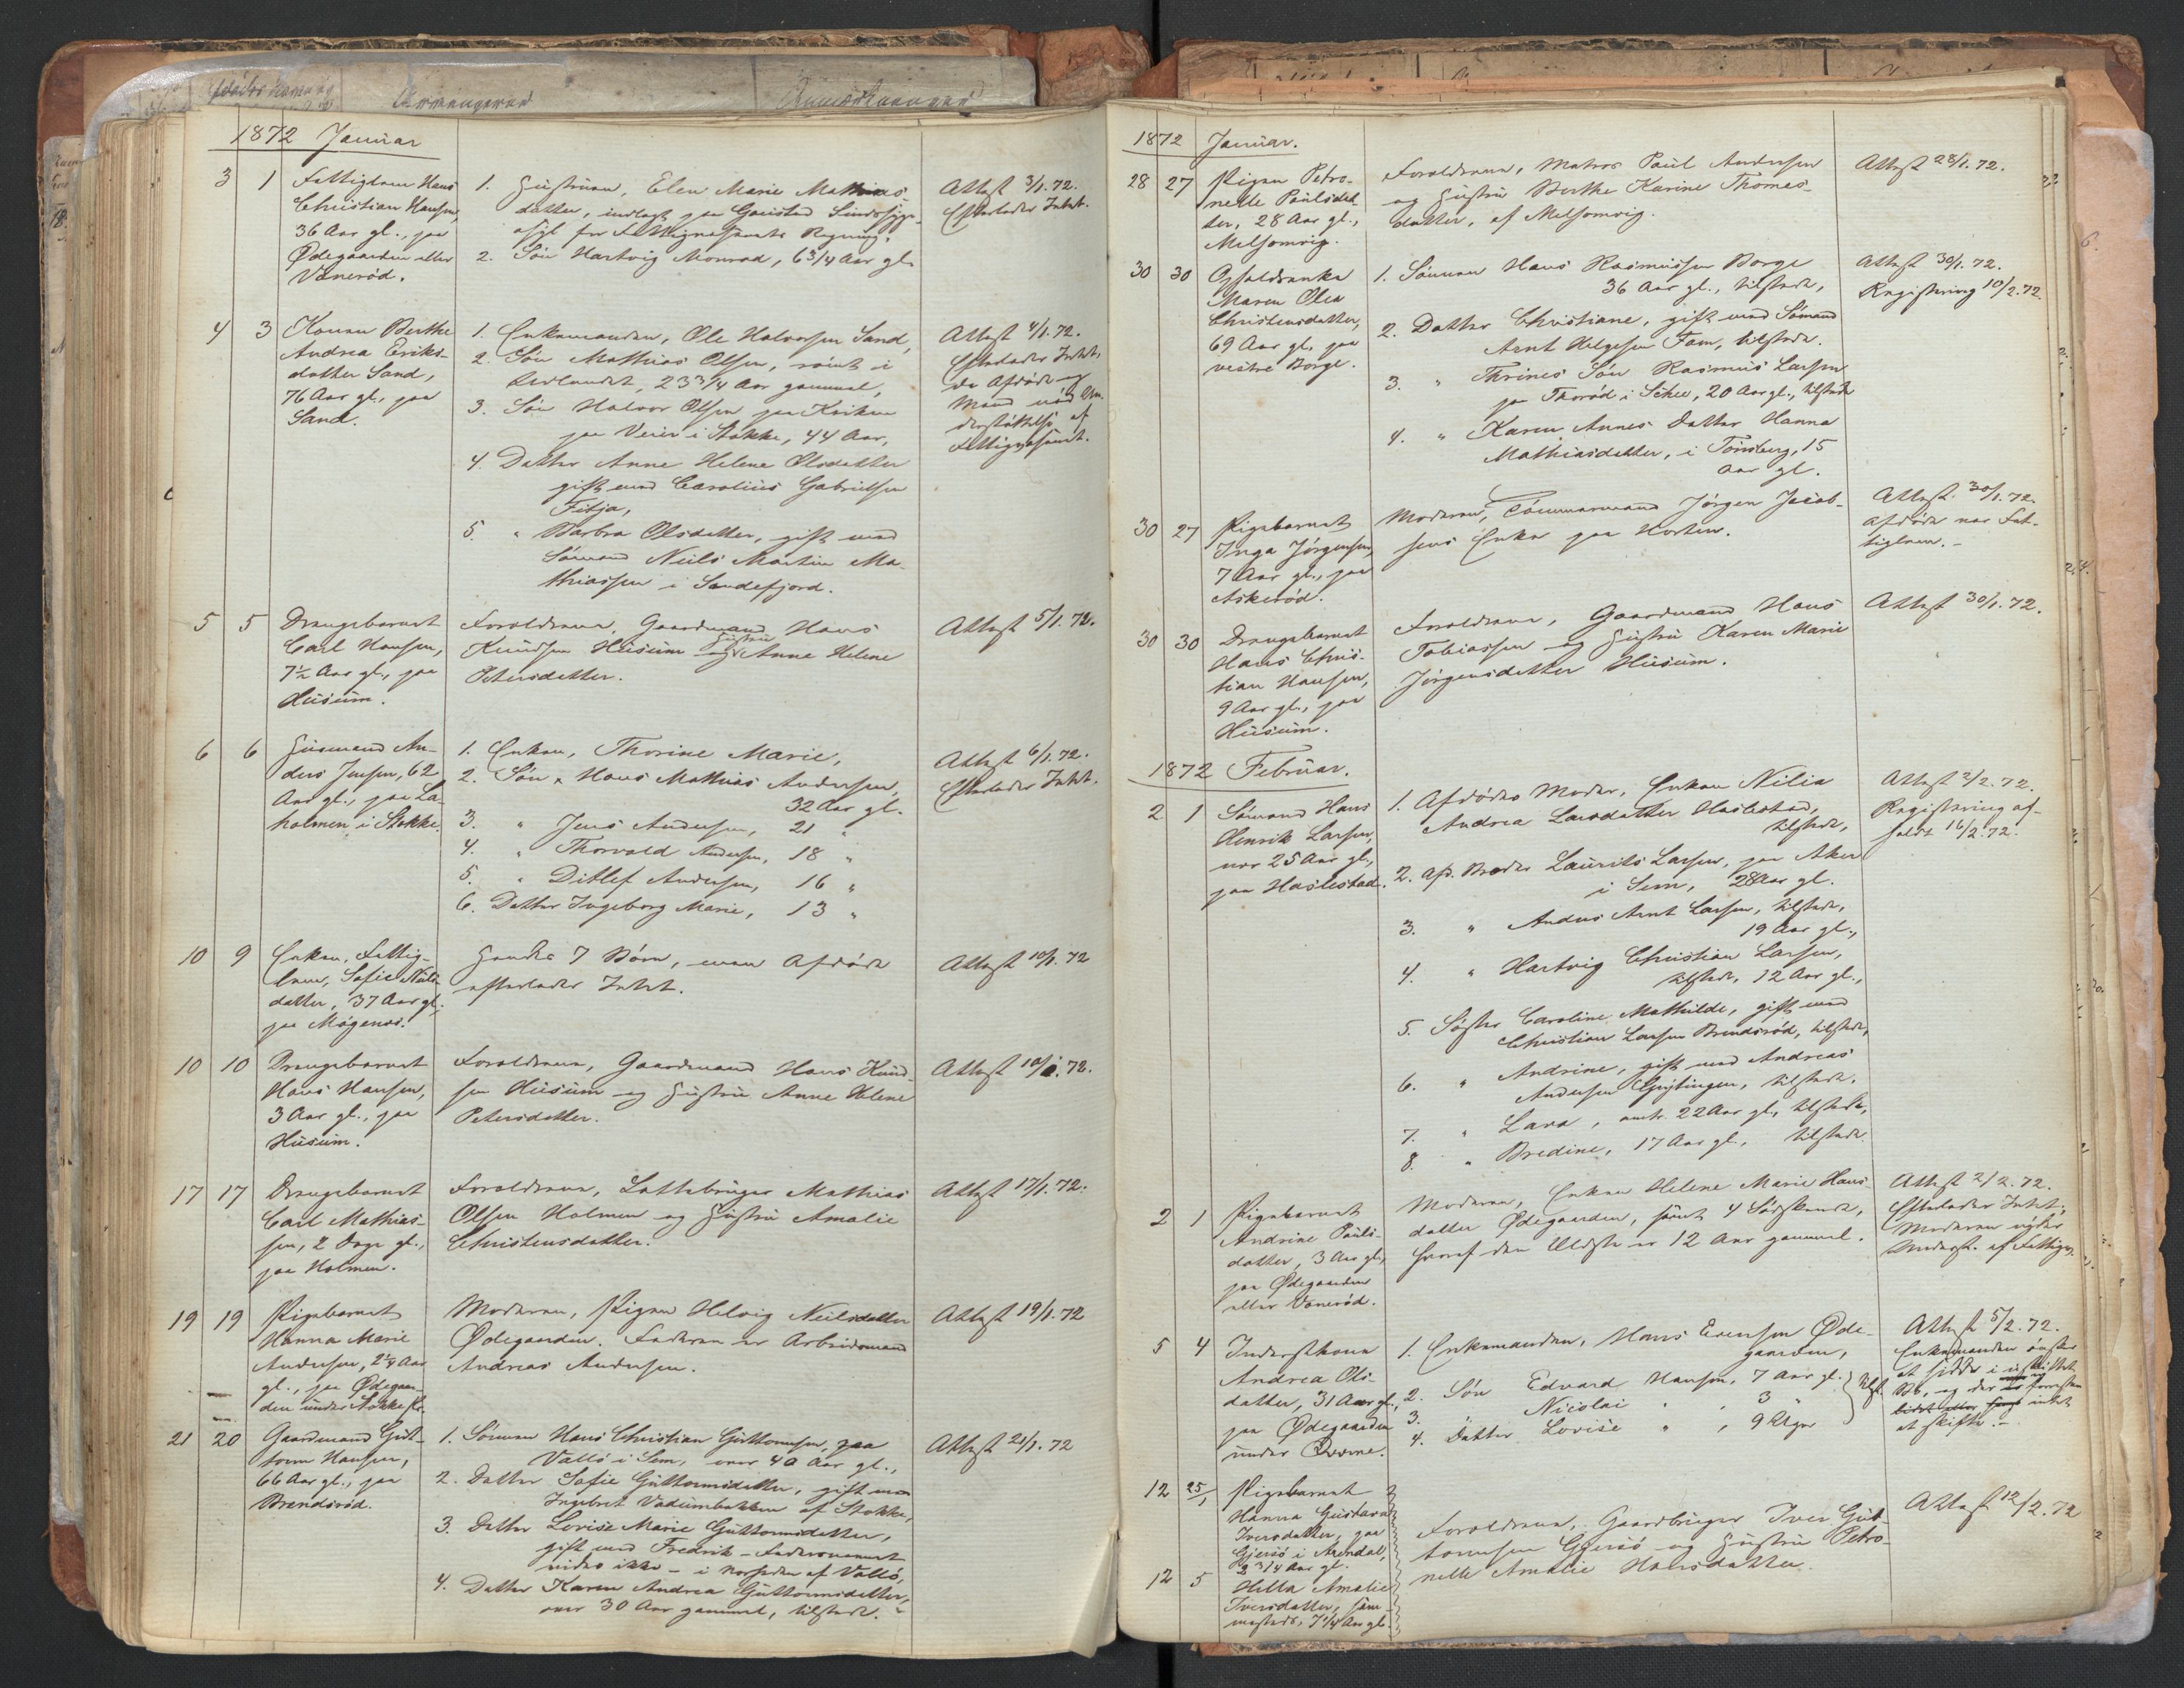 1872 Januar
3 1 Fattiglem Hans
Christian Hansen,
36 Aar gl., paa
Ødegaarden eller
Vanerød.
1. Hustruen, Elen Marie Mathias-
datter, indlagt paa Gaustad Sindssyge-
asyl for Fattigvæsenets Regning.
2. Søn Hartvig Monrad, 6 3/4 Aar gl.
Attest 3/1. 72.
Efterlader Intet.
4 3 Konen Berthe
Andrea Eriks-
datter Sand,
76 Aar gl., paa
Sand.
1. Enkemanden, Ole Halvorsen Sand,
2. Søn Mathias Olsen, rømt i
Udlandet, 23 3/4 Aar gammel,
3. Søn Halvor Olsen paa Kviken
paa Veier i Stokke, 44 Aar,
4. Datter Anne Helene Olsdatter
gift med Carolius Gabrielsen
Fitja,
5. " Barbra Olsdatter, gift med
Sømand Niels Martin Ma-
thiassen i Sandefjord.
Attest 4/1. 72.
Efterlader Intet,
da Afdøde og
Mand nød Un-
derstøttelse af
Fattigvæsenet.
5 5 Drengebarnet
Carl Hansen,
7½ Aar gl., paa
Husum.
Forældrene, Gaardmand Hans
Knudsen Husum og Hustru Anne Helene
Petersdatter.
Attest 5/1. 72.
6 6 Husmand An-
ders Jensen, 62
Aar gl., paa La-
holmen i Stokke.
1. Enken, Thorine Marie,
2. Søn, Hans Mathias Andersen,
32 Aar gl.
3. " Jens Andersen, 21 "
4. " Thorvald Andersen, 18 "
5. " Ditlef Andersen, 16 "
6. Datter Ingeborg Marie, 13 "
Attest 6/1. 72.
Efterlader Intet.
10 9 Enken, Fattig-
lem, Sofie Niels-
datter, 37 Aar gl.,
paa Møgenæs.
Havde 7 Børn, men Afdøde
efterlader Intet.
Attest 10/1. 72
10 10 Drengebarnet
Hans Hansen,
3 Aar gl., paa
Husum.
Forældrene, Gaardmand Hans Knud-
sen Husum og Hustru Anne Helene
Petersdatter.
Attest 10/1. 72.
17 17 Drengebarnet
Carl Mathias-
sen, 2 Dage gl.,
paa Holmen.
Forældrene, Lottebruger Mathias
Olsen Holmen og Hustru Amalie
Christensdatter.
Attest 17/1. 72.
19 19 Pigebarnet
Hanna Marie
Andersen, 2¼ Aar
gl., paa Ødegaar-
den under Stokke
Moderen, Pigen Helvig Neilsdatter
Ødegaarden. Faderen er Arbeidsmand
Andreas Andersen.
Attest 19/1. 72
21 20 Gaardmand Gut-
torm Hansen,
66 Aar gl., paa
Brendsrød.
1. Sønnen Hans Christian Guttormsen, paa
Vallø i Sem, over 40 Aar gl.,
2. Datter Sofie Guttormsdatter, gift med
Ingebret Vadumbakken af Stokke,
3. Datter Lovise Marie Guttormsdatter,
gift med Fredrik – Fadernavnet
vides ikke – i Nærheden af Vallø,
4. Datter Karen Andrea Guttormsdatter,
over 30 Aar gammel, tilstede.
Attest 21/1. 72
1872 Januar.
28 27 Pigen Petro-
nelle Paulsdat-
ter, 28 Aar gl.,
Melsomvig.
Forældrene, Matros Paul Andersen
og Hustru Berthe Karine Thomes-
datter, af Melsomvig.
Attest 28/1. 72.
30 30 Opholdsenke
Maren Olea
Christensdatter,
69 Aar gl., paa
vestre Borge.
1. Sønnen Hans Rasmussen Borge
36 Aar gl., tilstede,
2. Datter Christiane, gift med Sømand
Arnt Helgesen Fæn, tilstede.
3. " Thrines Søn Rasmus Larsen
paa Thorød i Scheе, 20 Aar gl., tilstede
4. " Karen Annes Datter Hanna
Mathiasdatter, i Tønsberg, 15
Aar gl.
Attest 30/1. 72.
Registrering 10/2. 72.
30 27 Pigebarnet
Inga Jørgensen,
7 Aar gl., paa
Askerød.
Moderen, Tømmermand Jørgen Jacob-
sens Enke paa Horten.
Attest 30/1. 72.
Afdøde var Fat-
tiglem. –
30 30 Drengebarnet
Hans Chris-
tian Hansen,
9 Aar gl., paa
Husum.
Forældrene, Gaardmand Hans
Tobiassen og Hustru Karen Marie
Jørgensdatter Husum.
Attest 30/1. 72.
1872 Februar.
2 1 Sømand Hans
Henrik Larsen,
over 25 Aar gl.,
paa Haslestad.
1. Afdødes Moder, Enken Nilia
Andrea Larsdatter Haslestad,
tilstede,
2. Afd. Broder Laurits Larsen, paa Aker
i Sem, 28 Aar gl.
3. " Anders Arnt Larsen, tilstede,
19 Aar gl.,
4. " Hartvig Christian Larsen,
tilstede, 12 Aar gl.,
5. Søster Caroline Mathilde, gift med
Christian Larsen Brendsrød, tilstede,
6. " Andrine, gift med Andreas
Andersen Gryttingen, tilstede.
7. " Lava, omtr. 22 Aar gl., tilstede,
8. " Bredine, 17 Aar gl., tilstede.
Attest 2/2. 72.
Registrering af-
holdt 16/2. 72.
2 1 Pigebarnet
Andrine Pauls-
datter, 3 Aar gl.,
paa Ødegaarden
eller Vanerød.
Moderen, Enken Helene Marie Hans-
datter Ødegaarden, samt 4 Sødskende,
hvoraf den Ældste er 12 Aar gammel.
Attest 2/2. 72.
Efterlader Intet;
Moderen nyder
Underst. af Fattigv.
5 4 Inderstkone
Andrea Ols-
datter, 31 Aar gl.,
paa Ødegaarden
under
1. Enkemanden, Hans Evensen Øde-
gaarden,
2. Søn Edvard Hansen, 7 Aar gl.
3. Nicolai " , 3 "
4. Datter Lovise " , 9 Uger
tilst.
Attest 5/2. 72.
Enkemanden ønsker
at sidde i uskiftet
Bo, og der er forresten
intet
at skifte. –
12 25/1 Pigebarnet
Hanna Gustava
Iversdatter, paa
Gjersø i Arendal,
2 3/4 Aar gl.
12 5 Hella Amalie
Iversdatter, sam-
mesteds, 7¼ Aar gl.
Forældrene, Gaardbruger Iver Gut-
tormsen Gjersø og Hustru Petro-
nelle Amalie Hansdatter.
Attest 12/2. 72